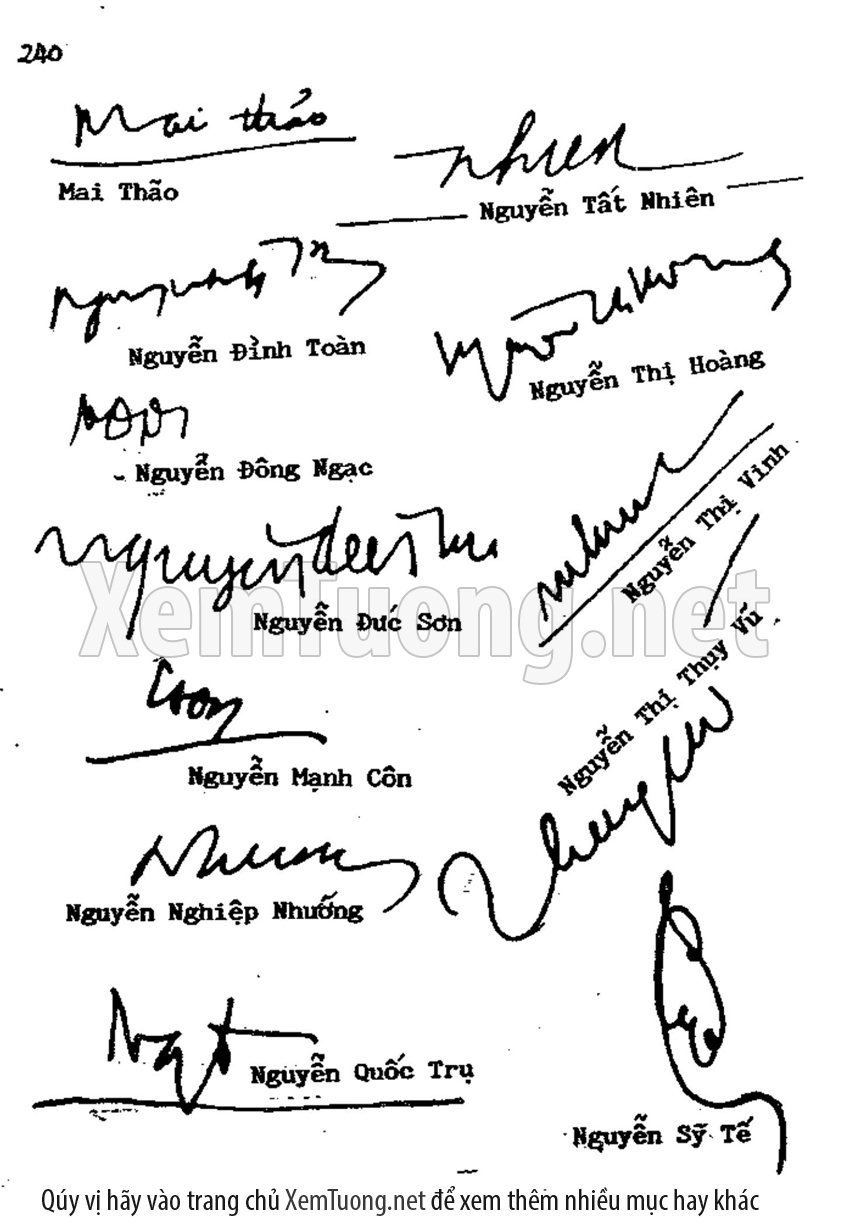 240
Mai thảo
Mai Thão
nhien
Nguyễn Tất Nhiên
Nguyễn Đỉnh Toàn
Nguyễn Thị Hoàng
NĐN
Nguyễn Đông Ngạc
Nguyễn Đức Sơn
Nguyễn Thị Vinh
XemTuong.net
Nguyễn Thị Thụy Vũ
Nguyễn Mạnh Côn
Nguyễn Nghiệp Nhướng
Nguyễn Quốc Trụ
Nguyễn Sỹ Tế
Qúy vị hãy vào trang chủ XemTuong.net để xem thêm nhiều mục hay khác